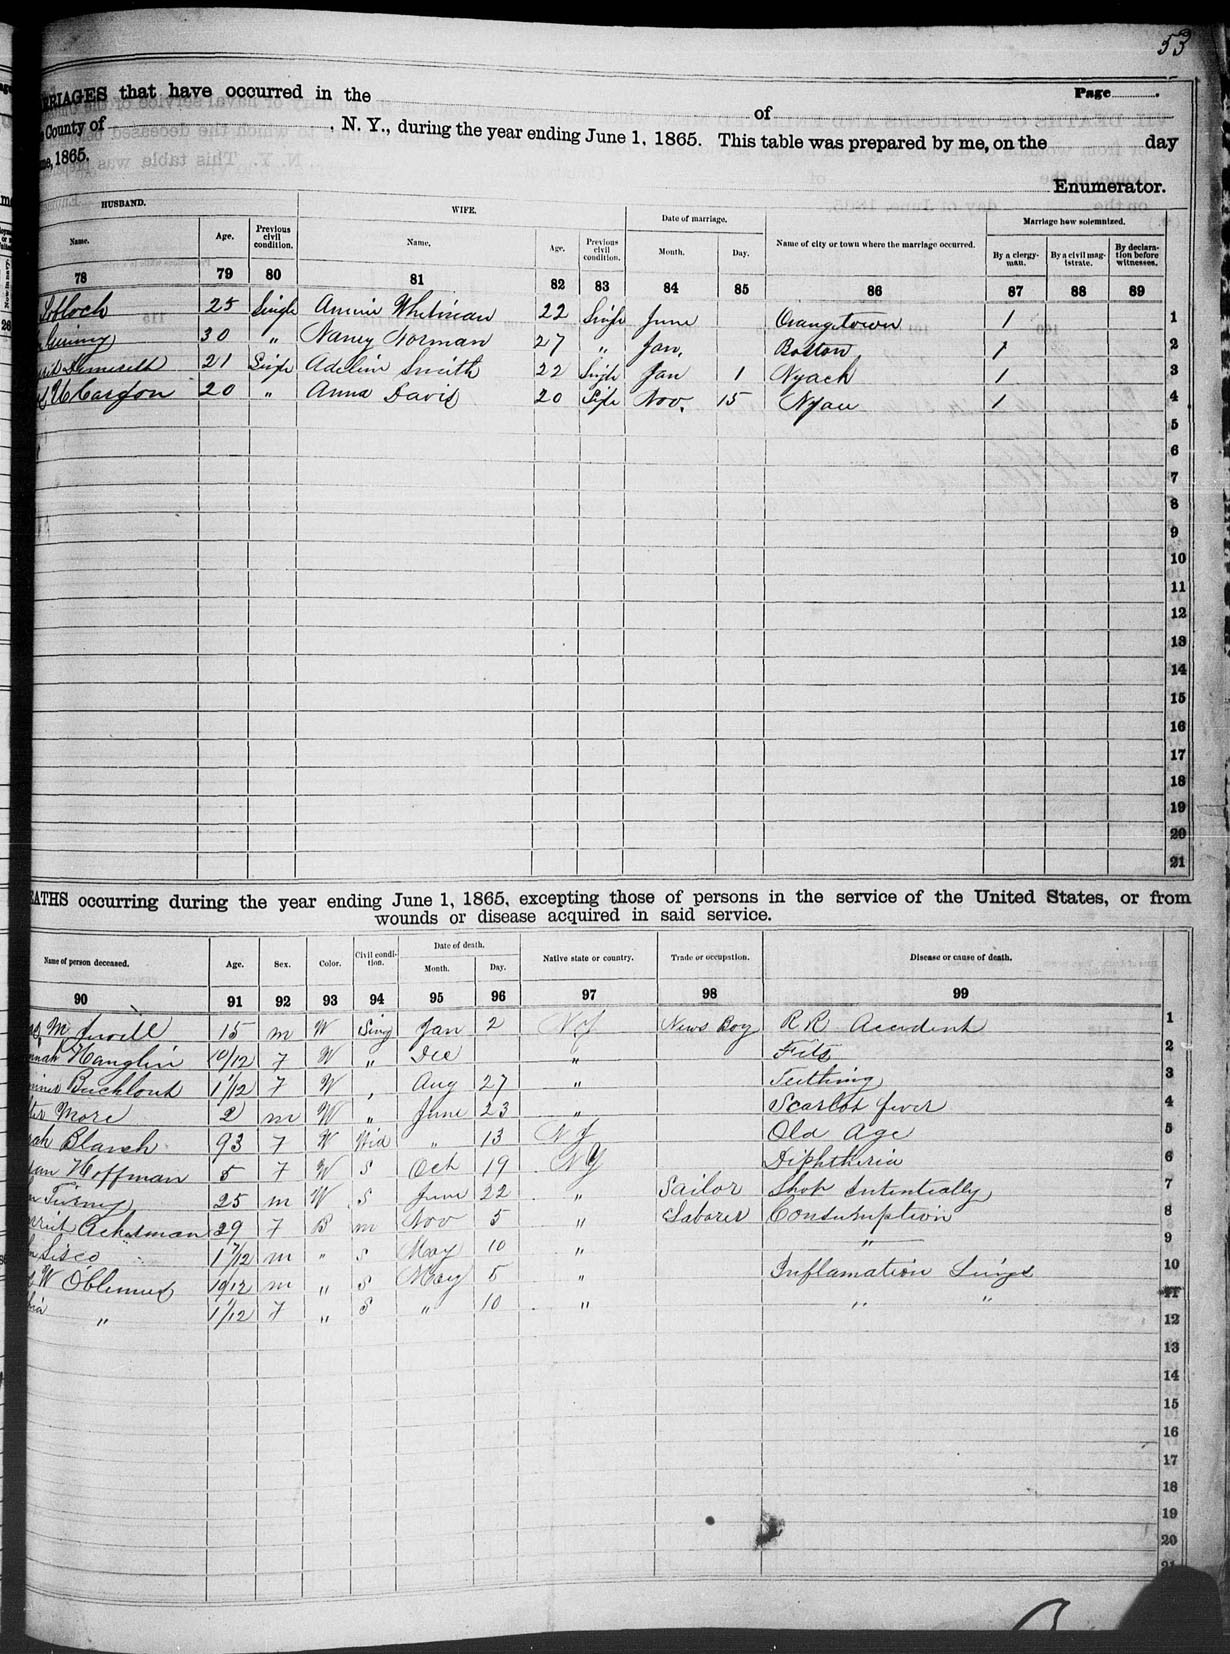 53
RRIAGES that have occurred in the
Page
of
County of , N. Y., during the year ending June 1, 1865. This table was prepared by me, on the day
ne, 1865.
Enumerator.
HUSBAND. WIFE. Date of marriage. Name of city or town where the marriage occurred. Marriage how solemnized.
Name. Age. Previous civil condition. Name. Age. Previous civil condition. Month. Day. By a clergyman. By a civil magistrate. By declaration before witnesses.
78 79 80 81 82 83 84 85 86 87 88 89
25 Single Annie Whitman 22 Single June Orangetown 1 1
30 " Nancy Norman 27 " Jan. Boston 1 2
21 Single Adeline Smith 22 Single Jan 1 Nyack 1 3
20 " Anna Davis 20 Nov. 15 1 4
5
6
7
8
9
10
11
12
13
14
15
16
17
18
19
20
21
EATHS occurring during the year ending June 1, 1865, excepting those of persons in the service of the United States, or from
wounds or disease acquired in said service.
Name of person deceased. Age. Sex. Color. Civil condition. Date of death. Month. Day. Native state or country. Trade or occupation. Disease or cause of death.
90 91 92 93 94 95 96 97 98 99
M 15 m W Sing Jan 2 NY News Boy R R Accident 1
nnah 10/12 F W " Dec " Fits 2
1/12 F W " Aug 27 " Teething 3
More 2 m W " June 23 " Scarlot fever 4
rah Blanch 93 F W Wid " 13 NJ Old Age 5
Hoffman 5 F W S Oct 19 NY Diphtheria 6
25 m W S June 22 " Sailor Shot 7
Ackerman 29 F B m Nov 5 " Laborer Consumption 8
Sisco m " S May 10 " " 9
W Oblenus m " S May 5 " Inflamation Lungs 10
" 1/12 F " S " 10 " " " 11
12
13
14
15
16
17
18
19
20
21